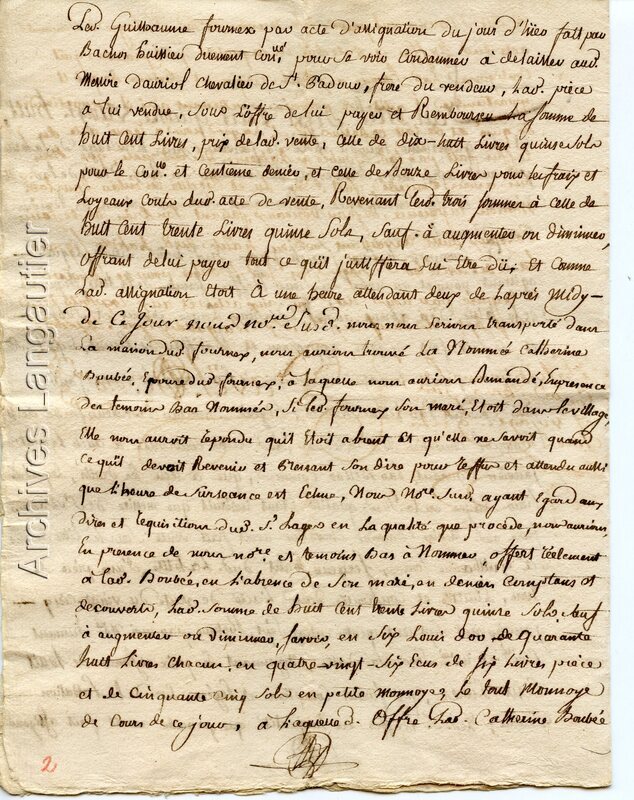 Led. Guilhaume fournex par acte d'assignation du jour d'hier fait par
Bachos huissier duement Con.llé pour se voir Condamner à delaisser aud.
Messire dauriol Chevalier de S.t Padoue, frere du vendeur, Lad. pièce
a lui vendue, Sous L'offre de lui payer et Rembourser La Somme de
huit Cent Livres, prix de lad. vente, celle de dix-huit Livres quinse Sols
pour le Con.lle et Centieme denier, et celle de Douze Livres pour les fraix et
Loyeaux couts dud. acte de vente, Revenant Lesd. trois sommes à celle de
huit Cent trente Livres quinse Sols, Sauf à augmenter ou diminuer,
Offrant de lui payer tout ce qu'il justiffiera Lui Etre dû; Et Comme
Lad. assignation Etoit À une heure attendant deux de Laprés Midy
de Ce Jour nous No.re Susd. nous nous Serions transporté dans
La maison dud. fournex, nous aurions trouvé La Nommée Catherine
Boubée, Epouse dud. fournex, à laquelle nous aurions Demandé, En presence
des temoins Bas Nommés, Si Led. fournex Son mari, Etoit dans le village,
Elle nous auroit repondu qu'il Etoit absent Et qu'elle ne Savoit quand
Ce qu'il devoit Revenir et Prenant Son dire pour reffus et attendu aussi
que l'heure de Surseance est Echue, Nous No.re Susd. ayant Egard aux
dires et requisitions dud. S.r Lages en La qualité que procède, nous aurions,
En presence de nous no.re et temoins Bas à Nommer, offert réelement
à lad. Boubée, en l'absence de Son mari, en deniers Comptans et
decouverts, Lad. Somme de huit Cent trente Livres quinse Sols, Sauf
à augmenter ou diminuer, Savoir, en Six Louis d'or de Quarante
huit Livres Chacun, en quatre-vingt-Six Ecus de Six Livres pièce
et de Cinquante Cinq Sols en petite Monnoye; Le tout Monnoye
de Cours de ce jour, à Laquelle d. Offre Lad. Catherine Boubée
2
Archives Langautier